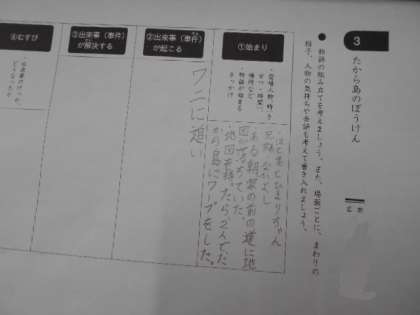 3
たから島のぼうけん
名前
● 物語の組み立てを考えましょう。また、場面ごとに、まわりの
様子、人物の気持ちや会話も考えて書き入れましょう。
①始まり
・登場人物、時(き
せつ・時間)、
場所など
・物語が始まる
きっかけ
ある朝家の前の道に地
図がおちていた。
地図を持ったら2人でた
から島にワープをした。
②出来事(事件)
が起こる
ワニに追い
③出来事(事件)
が解決する
④むすび